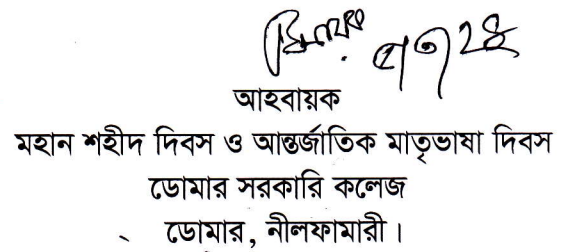 আহবায়ক
মহান শহীদ দিবস ও আন্তর্জাতিক মাতৃভাষা দিবস
ডোমার সরকারি কলেজ
ডোমার, নীলফামারী।